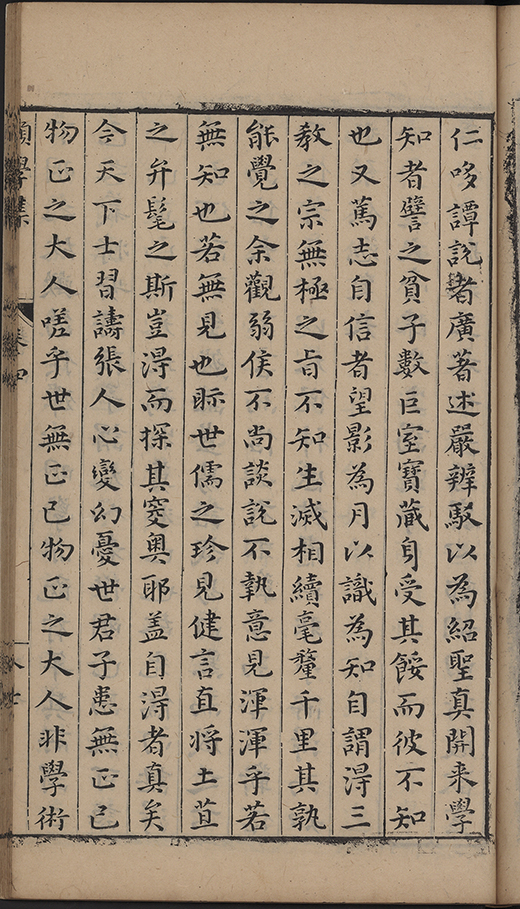 仁哆譚說者廣著述嚴辨駁以為紹聖真開来學
知者譬之貧子數巨室寶藏身受其餒而彼不知
也又篤志自信者望影為月以識為知自謂得三
教之宗無極之旨不知生滅相續毫釐千里其孰
能覺之余觀弱侯不尚談說不執意見渾渾乎若
無知也若無見也眎世儒之珍見健言直将土苴
之弁髦之斯豈淂而探其窔奥耶盖自淂者真矣
今天下士習譸張人心變幻憂世君子患無正已
物正之大人嗟乎世無正已物正之大人非學術
卷四